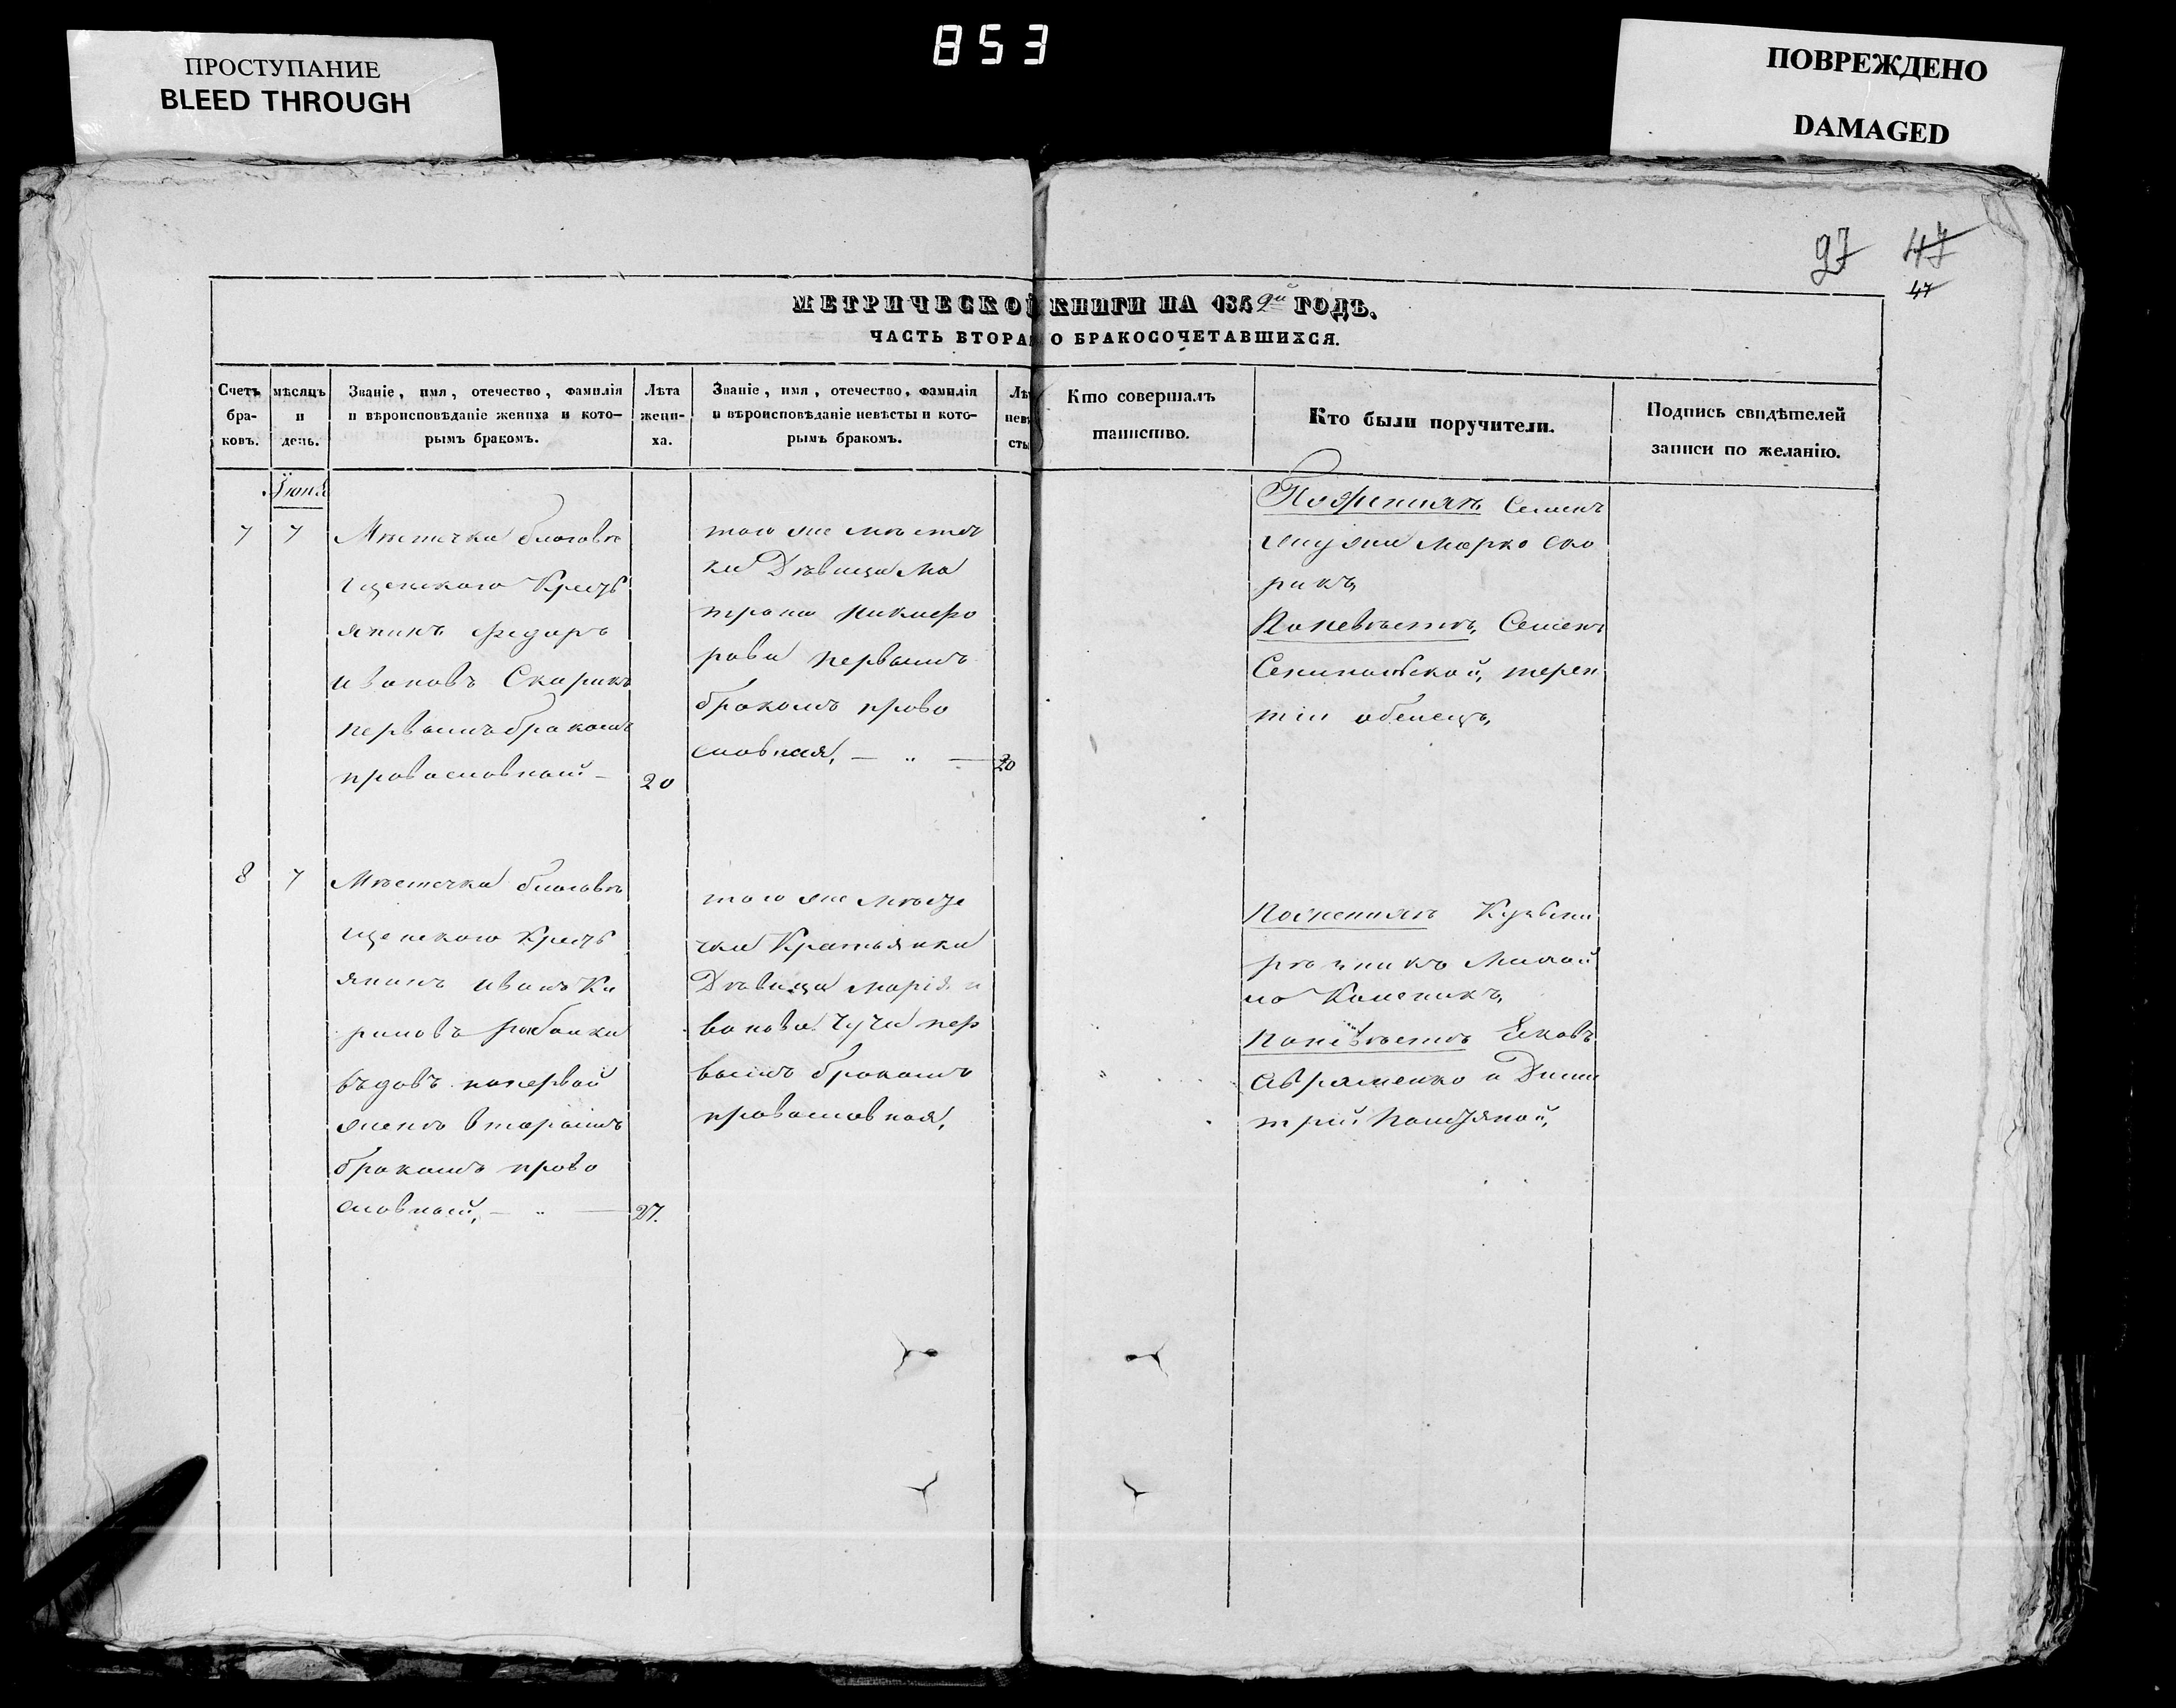 853
ПРОСТУПАНИЕ
BLEED THROUGH
ПОВРЕЖДЕНО
DAMAGED
97 47
47
МЕТРИЧЕСКОЙ КНИГИ НА 1849й ГОДЪ.
ЧАСТЬ ВТОРАЯ О БРАКОСОЧЕТАВШИХСЯ.
Счетъ
бра-
ковъ.
мѣсяцъ
и
день.
Званіе, имя, отечество, фамилія
и вѣроисповѣданіе жениха и кото-
рымъ бракомъ.
Лѣта
жени-
ха.
Званіе, имя, отечество, фамилія
и вѣроисповѣданіе невѣсты и кото-
рымъ бракомъ.
Лѣ
невѣ
сты
Кто совершалъ
таинство.
Кто были поручители.
Подпись свидѣтелей
записи по желанію.
Іюня
7
7
Мѣстечка благовѣ
щенскаго Кресть
янинъ Федоръ
Ивановъ Скорикъ
первымъ бракомъ
православный
20
того же мѣстеч
ка Дѣвица Ма
трона Никифо
рова первымъ
бракомъ право
славная,
20
По женихѣ Семенъ
Марко Ско
рикъ,
По невѣстѣ, Семенъ
терен
тій
8
7
Мѣстечка благовѣ
щенскаго Кресть
янинъ Иванъ Ки
риловъ рыбалка
вдовъ по первой
женѣ вторымъ
бракомъ право
славный,
27.
того же мѣсте
чка Крестьянка
Дѣвица Марія и
ванова Чуча пер
вымъ бракомъ
православная,
По женихѣ Кузьма
рѣзникъ Михай
ло
По невѣстѣ Яковъ
Авраменко и Дими
трій